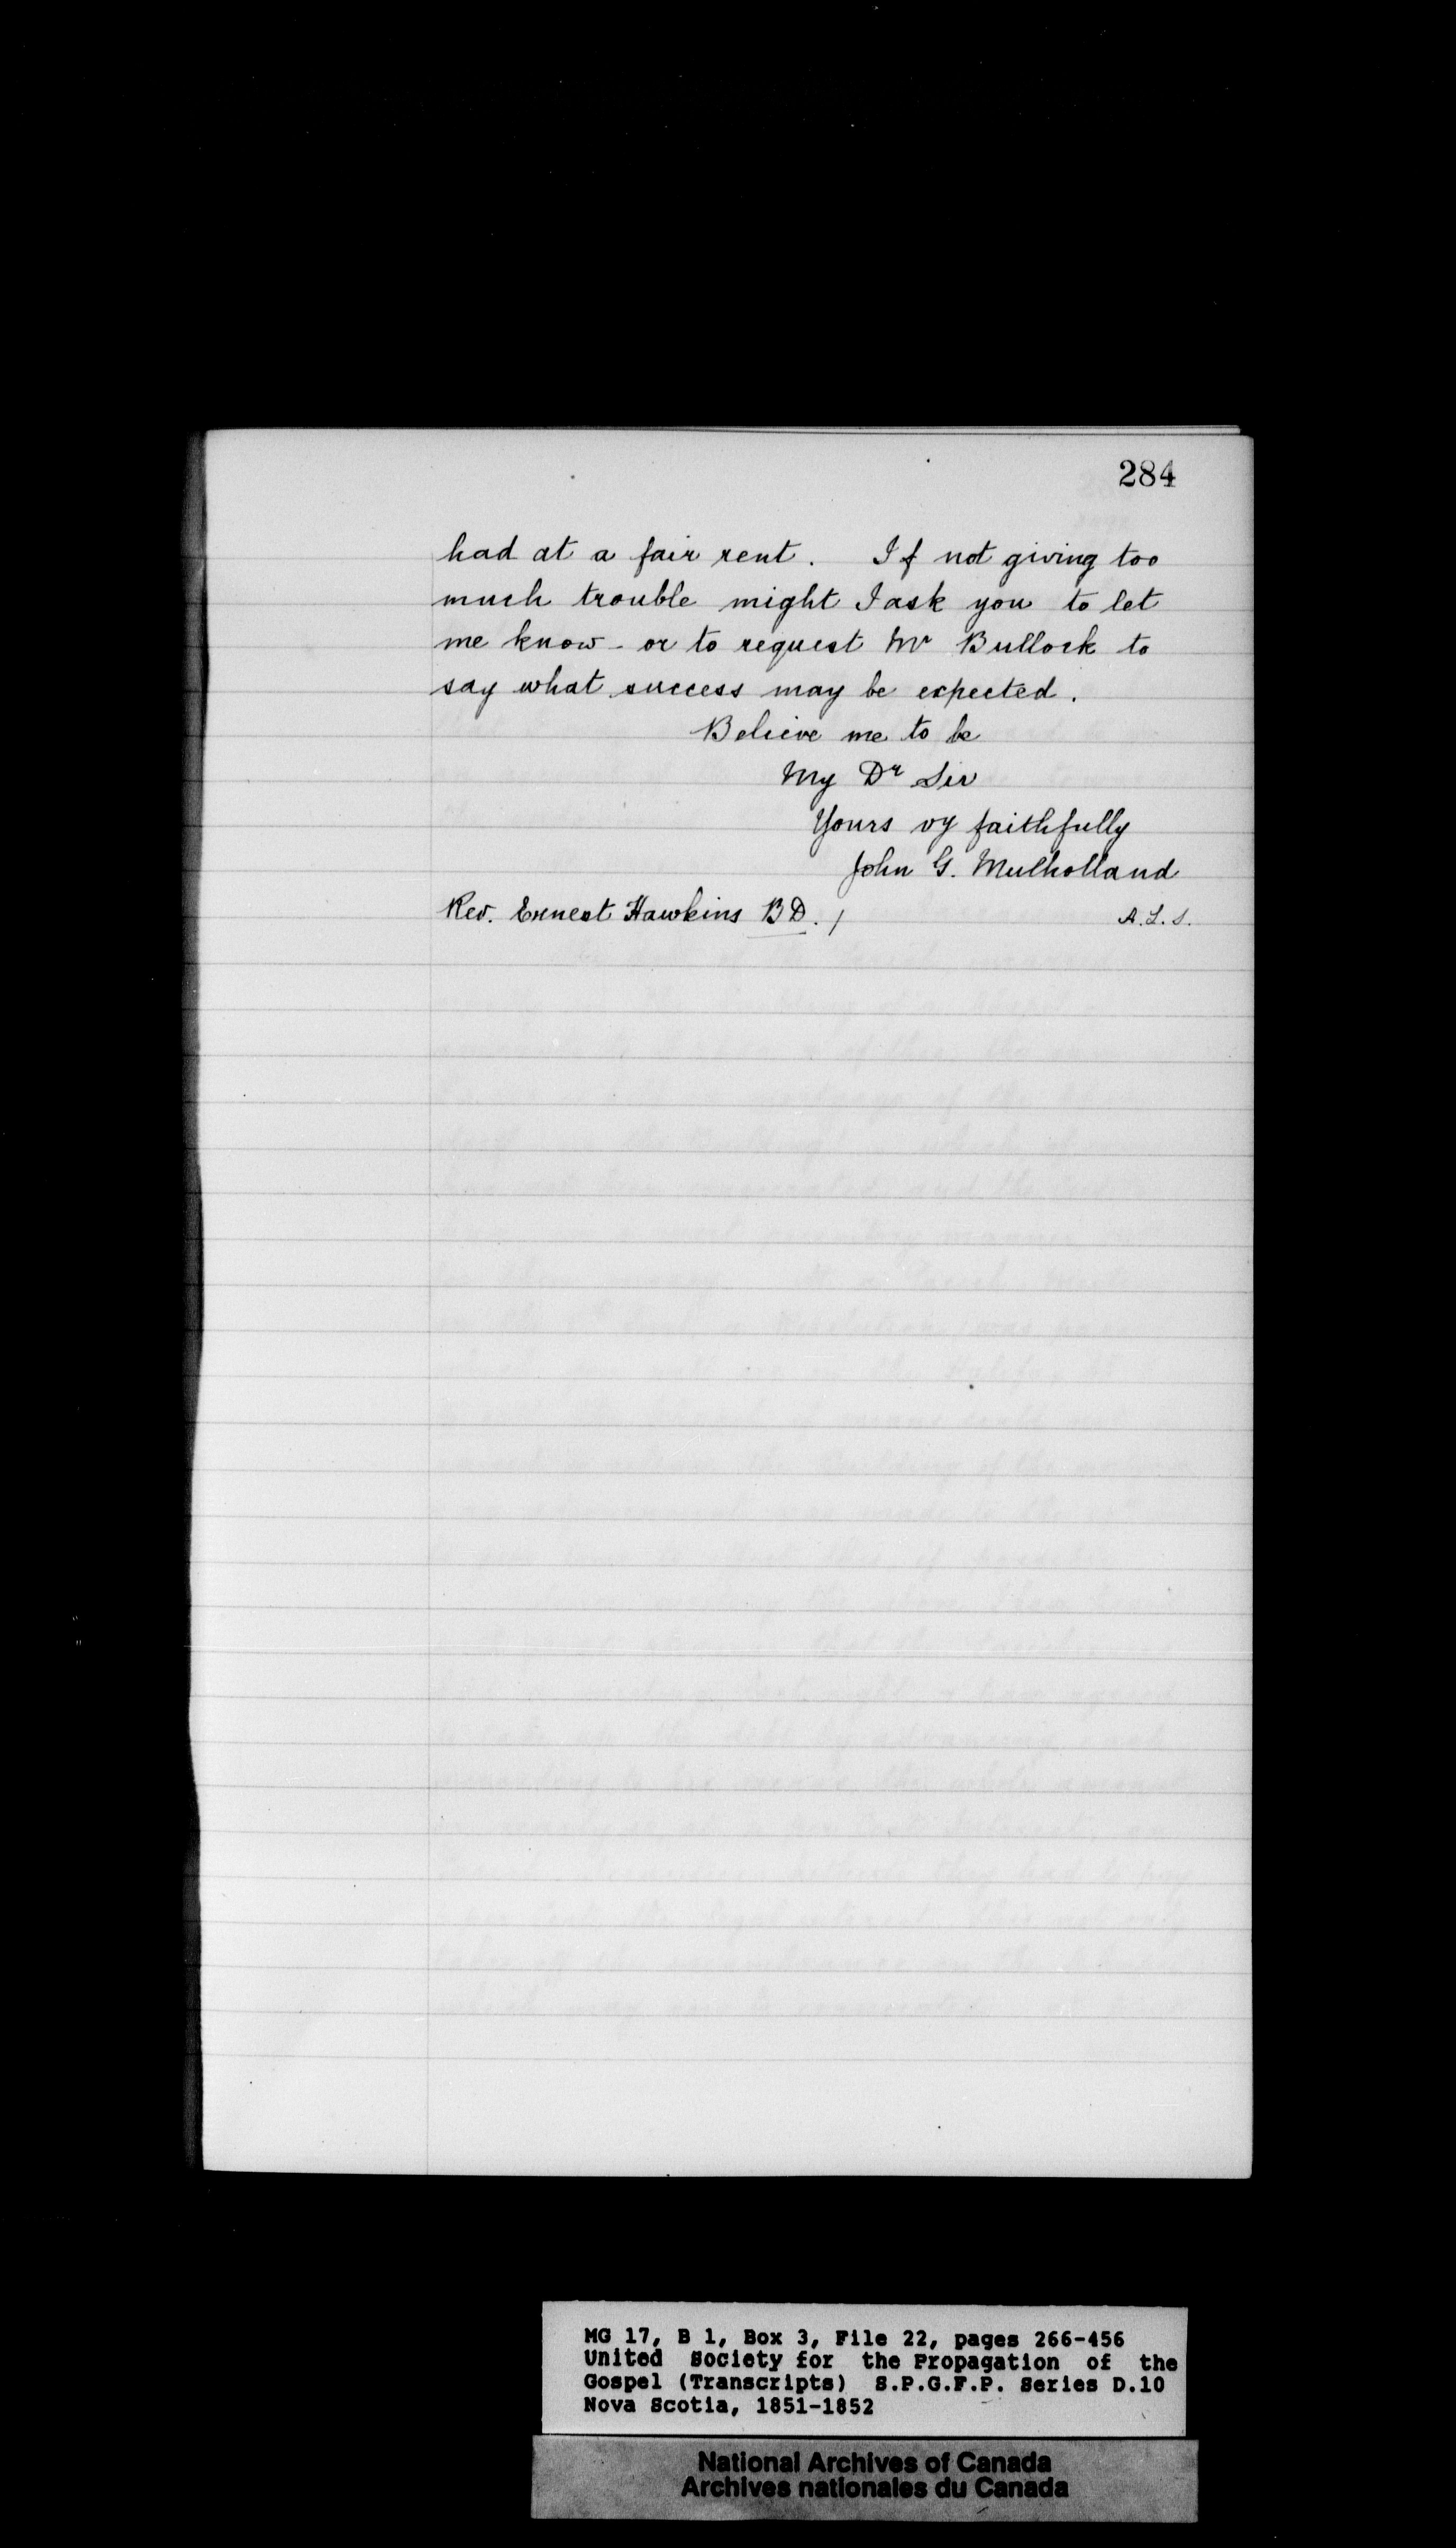 284
had at a fair rent. If not giving too
much trouble might I ask you to let
me know - or to request Mr Bullock to
say what success may be expected.
Believe me to be
My Dr Sir
Yours vy faithfully
John G. Mulholland
Rev. Ernest Hawkins BD. /
A.L.S.
MG 17, B 1, Box 3, File 22, pages 266-456
United Society for the Propagation of the
Gospel (Transcripts) S.P.G.F.P. Series D.10
Nova Scotia, 1851-1852
National Archives of Canada
Archives nationales du Canada